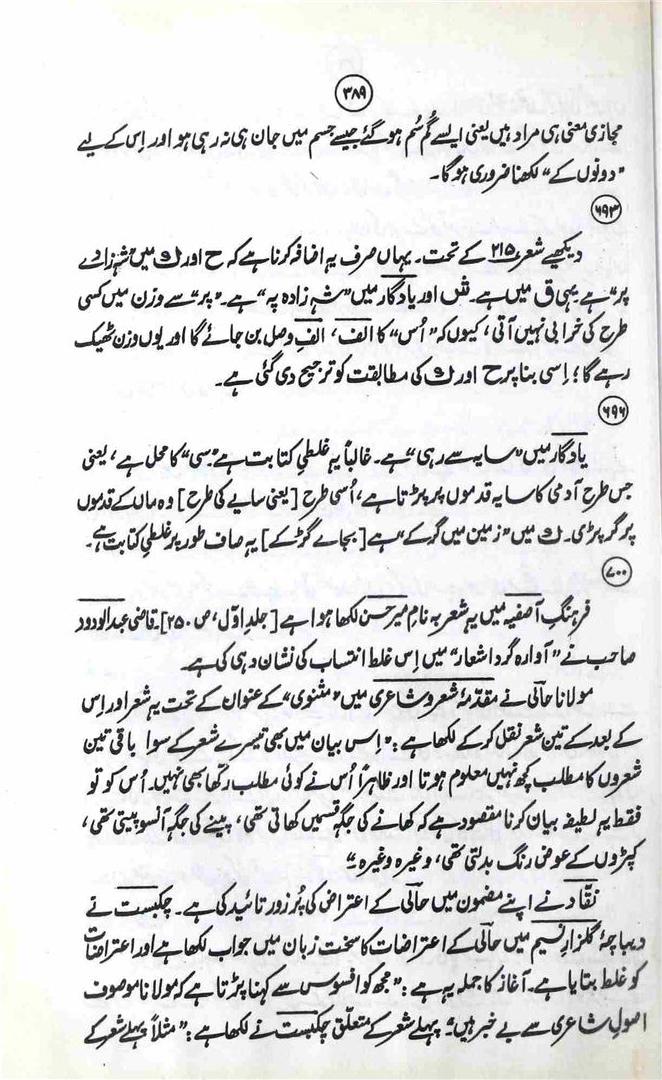 ۳۸۹
مجازی معنی ہی مراد ہیں یعنی ایسے گُم سُم ہو گئے جیسے جسم میں جان ہی نہ رہی ہو اور اِس کے لیے
”دونوں کے“ لکھنا ضروری ہوگا۔
۶۹۳
دیکھیے شعر ۲۱۵ کے تحت۔ یہاں صرف یہ اضافہ کرنا ہے کہ ح اور ک میں ”شہزادے
پر“ ہے۔ یہی ق میں ہے۔ ش اور یادگار میں ”شہزادہ پہ“ ہے۔ ”پر“ سے وزن میں کسی
طرح کی خرابی نہیں آتی، کیوں کہ ”اُس“ کا الف، الفِ وصل بن جائے گا اور یوں وزن ٹھیک
رہے گا؛ اِسی بنا پر ح اور ک کی مطابقت کو ترجیح دی گئی ہے۔
۶۹۶
یادگار میں ”سایہ سے رہی“ ہے۔ غالباً یہ غلطیِ کتابت ہے۔ ”سی“ کا محل ہے، یعنی
جس طرح آدمی کا سایہ قدموں پر پڑتا ہے، اُسی طرح [یعنی سایے کی طرح] وہ ماں کے قدموں
پر گر پڑی۔ ک میں ”زمین میں گر کے“ ہے [بجاے گڑ کے] یہ صاف طور پر غلطیِ کتابت ہے۔
۷۰۰
فرہنگِ آصفیہ میں یہ شعر بہ نامِ میر حسن لکھا ہوا ہے [جلدِ اوّل، ص ۲۵۰] قاضی عبدالودود
صاحب نے ”آوارہ گرد اشعار“ میں اِس غلط انتساب کی نشان دہی کی ہے۔
مولانا حالی نے مقدمۂ شعر و شاعری میں ”مثنوی“ کے عنوان کے تحت یہ شعر اور اِس
کے بعد کے تین شعر نقل کر کے لکھا ہے: ”اِس بیان میں بھی تیسرے شعر کے سوا باقی تین
شعروں کا مطلب کچھ نہیں معلوم ہوتا اور ظاہراً اُس نے کوئی مطلب رکھا بھی نہیں۔ اُس کو تو
فقط یہ لطیفہ بیان کرنا مقصود ہے کہ کھانے کی جگہ قسمیں کھاتی تھی، پینے کی جگہ آنسو پیتی تھی،
کپڑوں کے عوض رنگ بدلتی تھی، وغیرہ وغیرہ“۔
نقّاد نے اپنے مضمون میں حالی کے اعتراض کی پُر زور تائید کی ہے۔ چکبست نے
دیباچۂ گلزارِ نسیم میں حالی کے اعتراضات کا سخت زبان میں جواب لکھا ہے اور اعتراضات
کو غلط بتایا ہے۔ آغاز کا جملہ یہ ہے: ”مجھ کو افسوس سے کہنا پڑتا ہے کہ مولانا موصوف
اصولِ شاعری سے بے خبر ہیں“۔ پہلے شعر کے متعلق چکبست نے لکھا ہے: ”مثلاً پہلے شعر کے